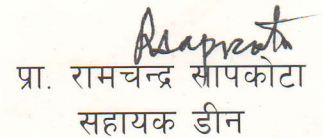 प्रा. रामचन्द्र सापकोटा
सहायक डीन